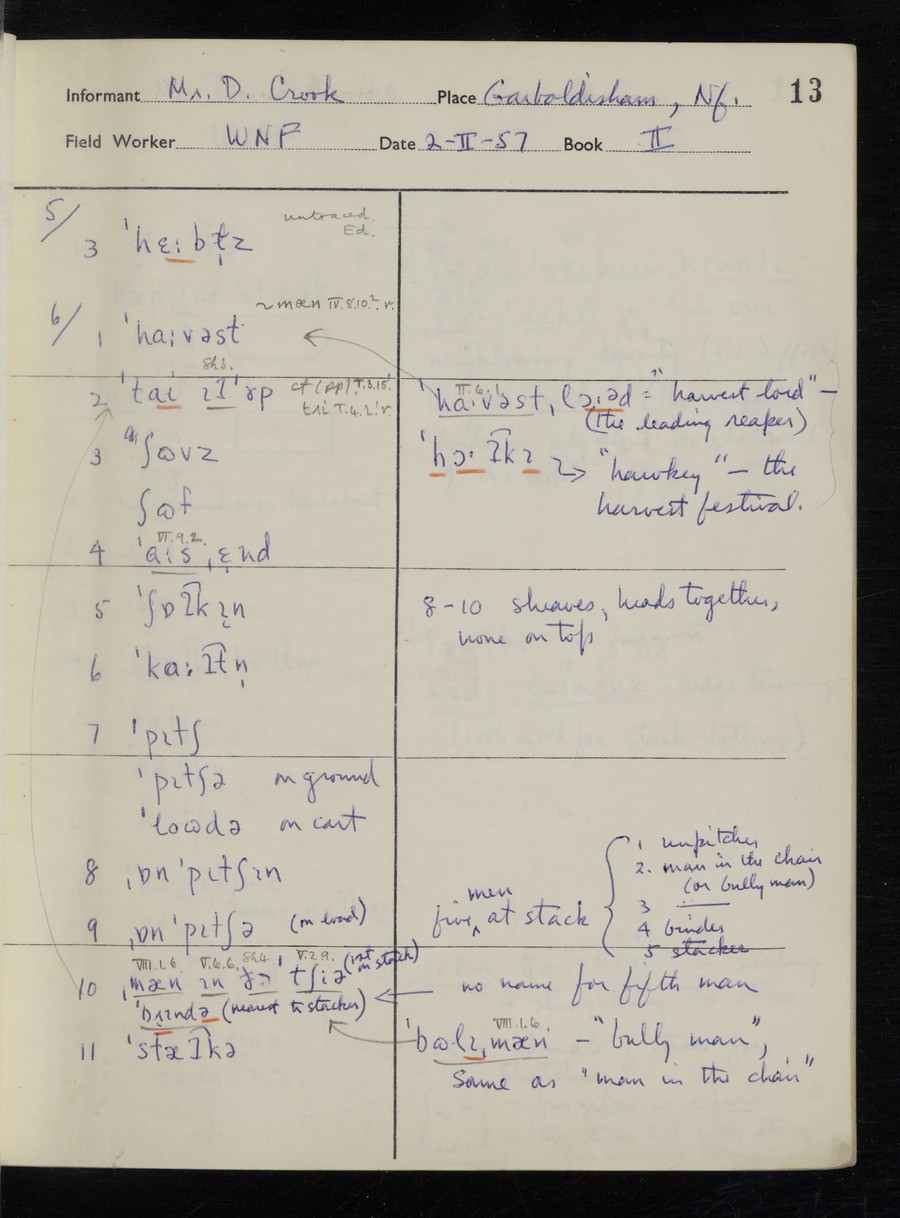 Informant Mr. D. Crook Place Garboldisham, Nf. 13
Field Worker WNF Date 2-II-57 Book II
5/
untraced
Ed.
3 ˈhɛːbt̩z
~mæn IV.8.10².r.
6/ 1 ˈhaːvəst
2 ˈtai ɪI ˈɤp
ˈhaːvəst, lɔːəd = "harvest lord" —
(the leading reaper)
3 ʃɷvz
ˈhɔːʔkɪ → "hawkey" — the
ʃɷf
harvest festival.
VI.9.2.
4 ˈaːs ˌɛnd
5 ˈʃɒʔkɪn
8-10 sheaves, heads together,
none on top
6 ˈkaːʔtn̩
7 ˈpɪtʃ
ˈpɪtʃə on ground
ˈloɷdə on cart
8 ˌɒnˈpɪtʃɪn
9 ˌɒnˈpɪtʃə (on load)
men
five ‸ at stack
1 unpitcher
2. man in the chair
(or bully man)
3 —
4 binder
5 stacker
VIII.1.6. V.6.6. Sh4. V.2.9.
10 ˌmæn ɪn ðə tʃiə (1st on stack)
ˈbɪndə (nearest to stacker)
no name for fifth man
11 ˈstæʔkə
VIII.1.6.
ˈbɷlɪˌmæn — "bully man",
same as "man in the chair"